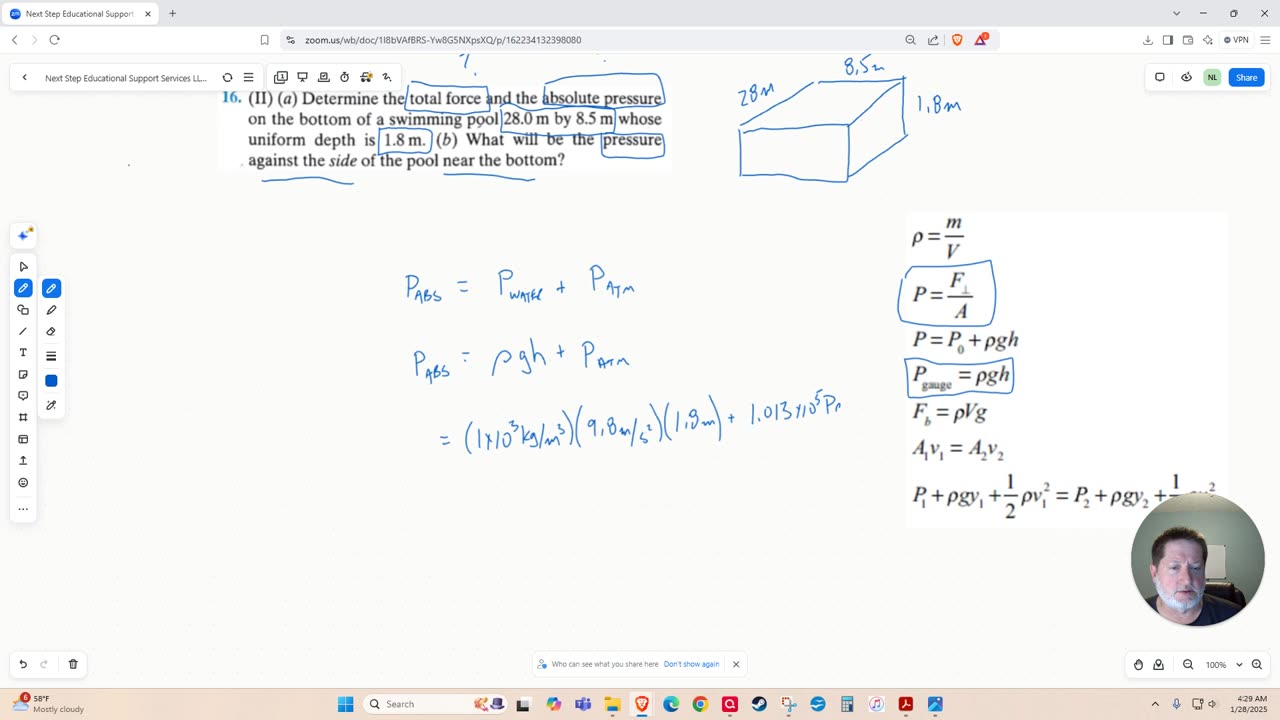 Next Step Educational Support
zoom.us/wb/doc/1I8bVAfBRS-Yw8G5NXpsXQ/p/162234132398080
VPN
Next Step Educational Support Services LL...
NL
Share
?
28m
8,5m
1,8m
16. (II) (a) Determine the total force and the absolute pressure
on the bottom of a swimming pool 28.0 m by 8.5 m whose
uniform depth is 1.8 m. (b) What will be the pressure
against the side of the pool near the bottom?
P_ABS = P_WATER + P_ATM
P_ABS = ρgh + P_ATM
= (1×10³ kg/m³)(9,8m/s²)(1,8m) + 1.013×10⁵ Pa
ρ = m/V
P = F⊥/A
P = P₀ + ρgh
P_gauge = ρgh
F_b = ρVg
A₁v₁ = A₂v₂
P₁ + ρgy₁ + 1/2 ρv₁² = P₂ + ρgy₂ + 1
Who can see what you share here Don't show again
100%
58°F
Mostly cloudy
Search
4:29 AM
1/28/2025